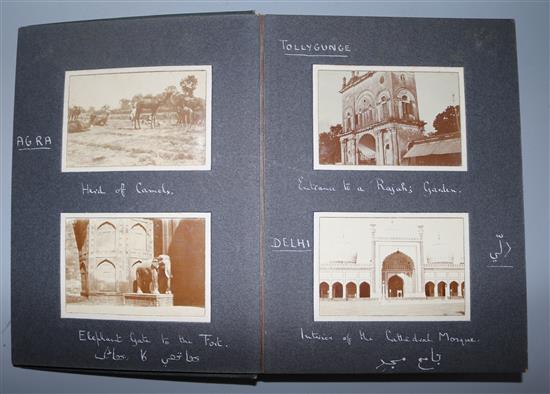 AGRA
Herd of Camels.
Elephant Gate to the Fort.
TOLLYGUNGE
Entrance to a Rajah's Garden.
DELHI
دلّي
Interior of the Cathedral Mosque.
جامع مسجد